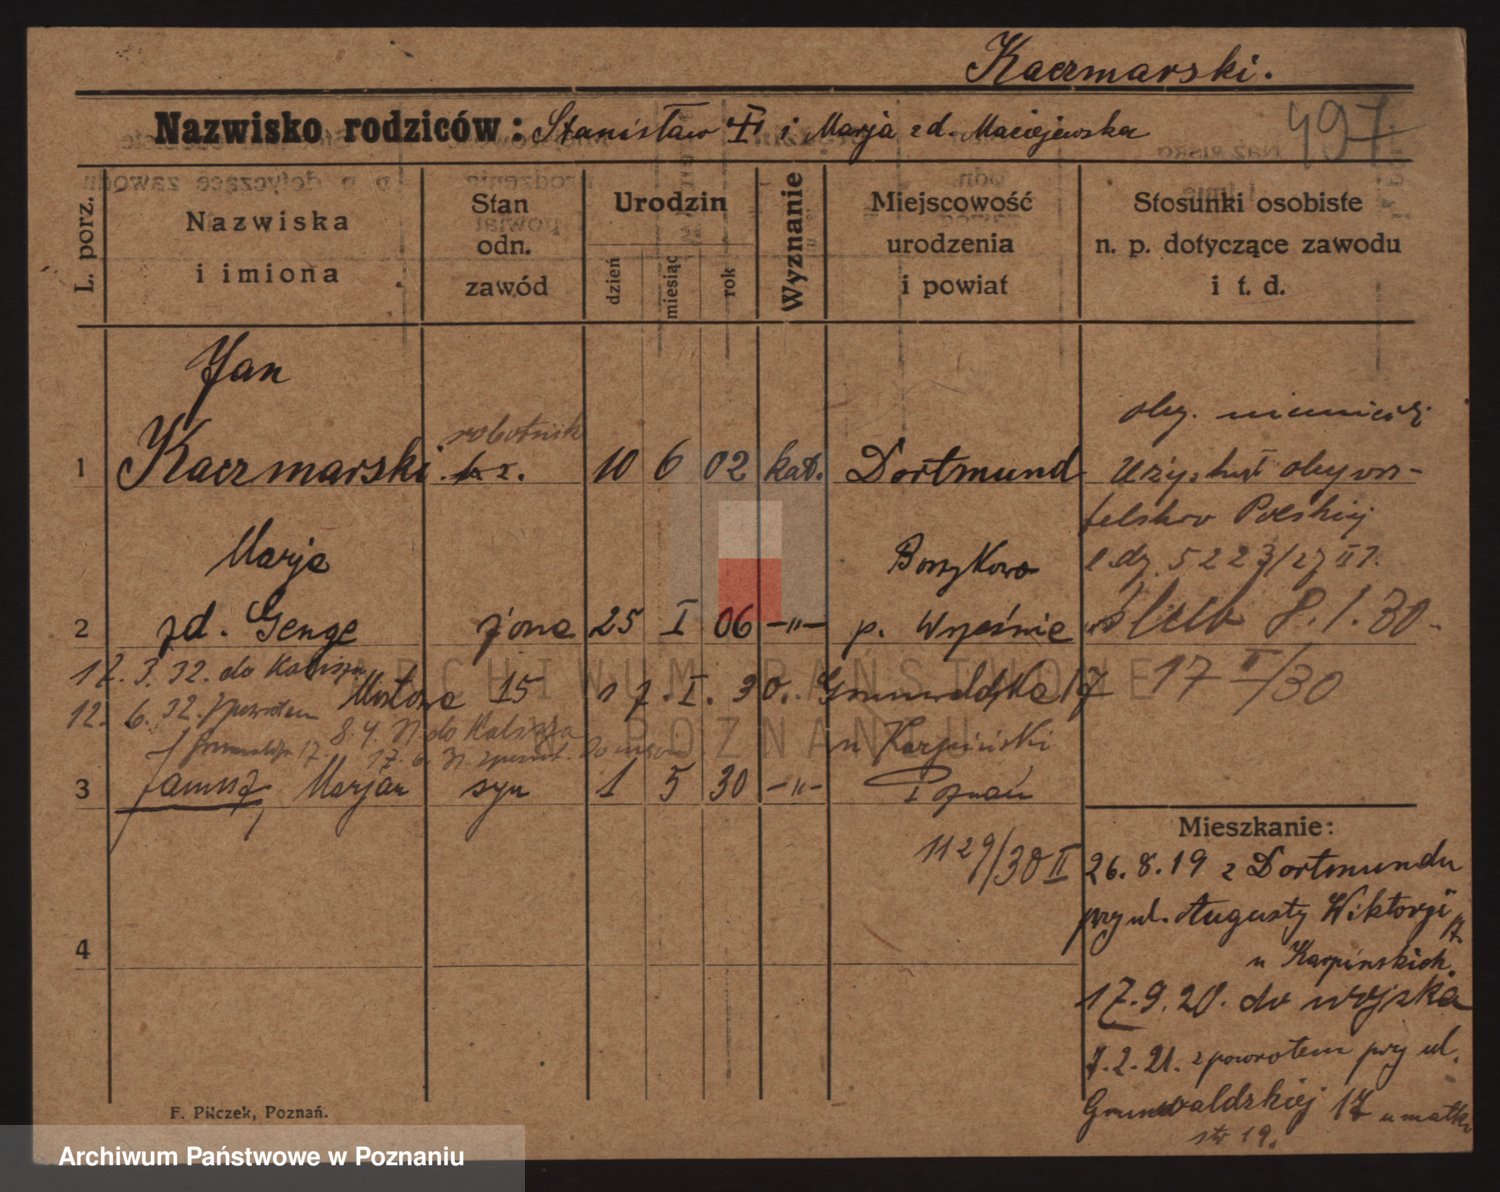 Kaczmarski.
Nazwisko rodziców: Stanisław i Marja zd. Maciejewska
497
L. porz.
Nazwiska
i imiona
Stan
odn.
zawód
Urodzin
dzień
miesiąc
rok
Wyznanie
Miejscowość
urodzenia
i powiat
Stosunki osobiste
n. p. dotyczące zawodu
i t. d.
Jan
1 Kaczmarski robotnik 10 6 02 kat. Dortmund
obyw. niemiecki
Uzyskał obywa-
telstwo Polskiej
l. dz. 5223/27 II
Marja
2 zd. Genge żona 25 I 06 -"- p. Września
ślub 8.1.30.
17 II/30
17. 3. 32. do Kalisza
Mostowa 15 17. I. 30. Grunwaldzka 17
12. 6. 32. zpowrotem
8. 4. 31 do Kalisza
Grunwaldzka 17 17. 6. 31. zpowrot.
u Karpiński
3 Janusz Marjan syn 1 5 30 -"- Poznań
1129/30 II
4
Mieszkanie:
26. 8. 19 z Dortmundu
przy ul. Augusty Wiktorji 17
u Karpińskich.
17. 9. 20. do wojska
7. 2. 21. zpowrotem przy ul.
Grunwaldzkiej 17 u matki
str 19.
F. Pilczek, Poznań.
ARCHIWUM PAŃSTWOWE
W POZNANIU
Archiwum Państwowe w Poznaniu